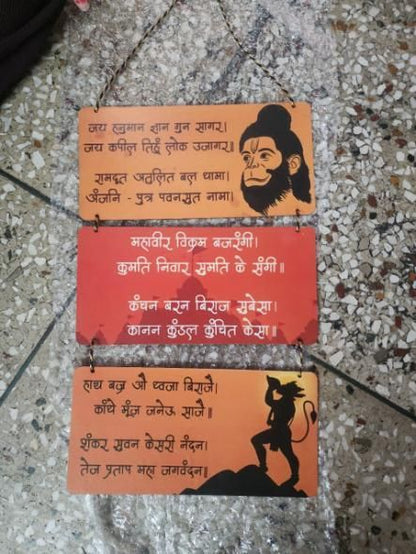 जय हनुमान ज्ञान गुन सागर।
जय कपीस तिहुँ लोक उजागर॥
रामदूत अतुलित बल धामा।
अंजनि - पुत्र पवनसुत नामा।
महावीर विक्रम बजरंगी।
कुमति निवार सुमति के संगी॥
कंचन बरन बिराज सुबेसा।
कानन कुंडल कुंचित केसा॥
हाथ बज्र औ ध्वजा बिराजै।
काँधे मूँज जनेऊ साजै॥
शंकर सुवन केसरी नंदन।
तेज प्रताप महा जगवंदन॥